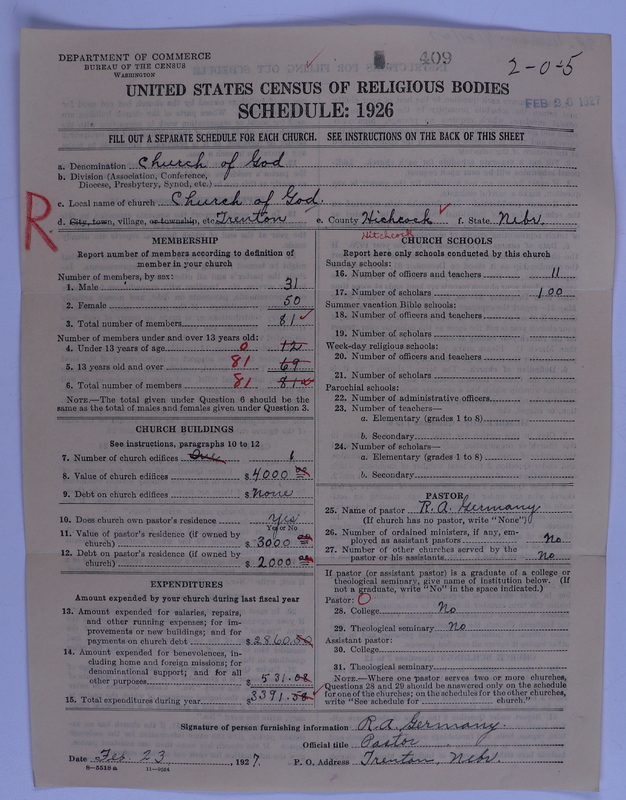 DEPARTMENT OF COMMERCE
BUREAU OF THE CENSUS
WASHINGTON
409
2-0-5
UNITED STATES CENSUS OF RELIGIOUS BODIES
SCHEDULE: 1926
FEB 26 1927
FILL OUT A SEPARATE SCHEDULE FOR EACH CHURCH. SEE INSTRUCTIONS ON THE BACK OF THIS SHEET
a. Denomination Church of God
b. Division (Association, Conference,
Diocese, Presbytery, Synod, etc.)
c. Local name of church Church of God.
d. City, town, village, or township, etc. Trenton e. County Hichcock f. State Nebr.
Hitchcock
R
MEMBERSHIP
Report number of members according to definition of
member in your church
Number of members, by sex:
1. Male 31
2. Female 50
3. Total number of members 81
Number of members under and over 13 years old:
4. Under 13 years of age 0 12
5. 13 years old and over 81 69
6. Total number of members 81 81
NOTE.—The total given under Question 6 should be the
same as the total of males and females given under Question 3.
CHURCH BUILDINGS
See instructions, paragraphs 10 to 12
7. Number of church edifices One 1
8. Value of church edifices $ 4000 00
9. Debt on church edifices $ None
10. Does church own pastor's residence Yes
Yes or No
11. Value of pastor's residence (if owned by
church) $ 3000 00
12. Debt on pastor's residence (if owned by
church) $ 2000 00
EXPENDITURES
Amount expended by your church during last fiscal year
13. Amount expended for salaries, repairs,
and other running expenses; for im-
provements or new buildings; and for
payments on church debt $ 2860.50
14. Amount expended for benevolences, in-
cluding home and foreign missions; for
denominational support; and for all
other purposes $ 531.08
15. Total expenditures during year $ 3391.58
CHURCH SCHOOLS
Report here only schools conducted by this church
Sunday schools:
16. Number of officers and teachers 11
17. Number of scholars 100
Summer vacation Bible schools:
18. Number of officers and teachers
19. Number of scholars
Week-day religious schools:
20. Number of officers and teachers
21. Number of scholars
Parochial schools:
22. Number of administrative officers
23. Number of teachers—
a. Elementary (grades 1 to 8)
b. Secondary
24. Number of scholars—
a. Elementary (grades 1 to 8)
b. Secondary
PASTOR
25. Name of pastor R. A. Germany
(If church has no pastor, write "None")
26. Number of ordained ministers, if any, em-
ployed as assistant pastors No
27. Number of other churches served by the
pastor or his assistants No
If pastor (or assistant pastor) is a graduate of a college or
theological seminary, give name of institution below. (If
not a graduate, write "No" in the space indicated.)
Pastor: 0
28. College No
29. Theological seminary No
Assistant pastor:
30. College
31. Theological seminary
NOTE.—Where one pastor serves two or more churches,
Questions 28 and 29 should be answered only on the schedule
for one of the churches; on the schedules for the other churches,
write "See schedule for church."
Signature of person furnishing information R. A. Germany.
Official title Pastor
Date Feb. 23, 1927. P. O. Address Trenton, Nebr.
8—5518a 11—9224